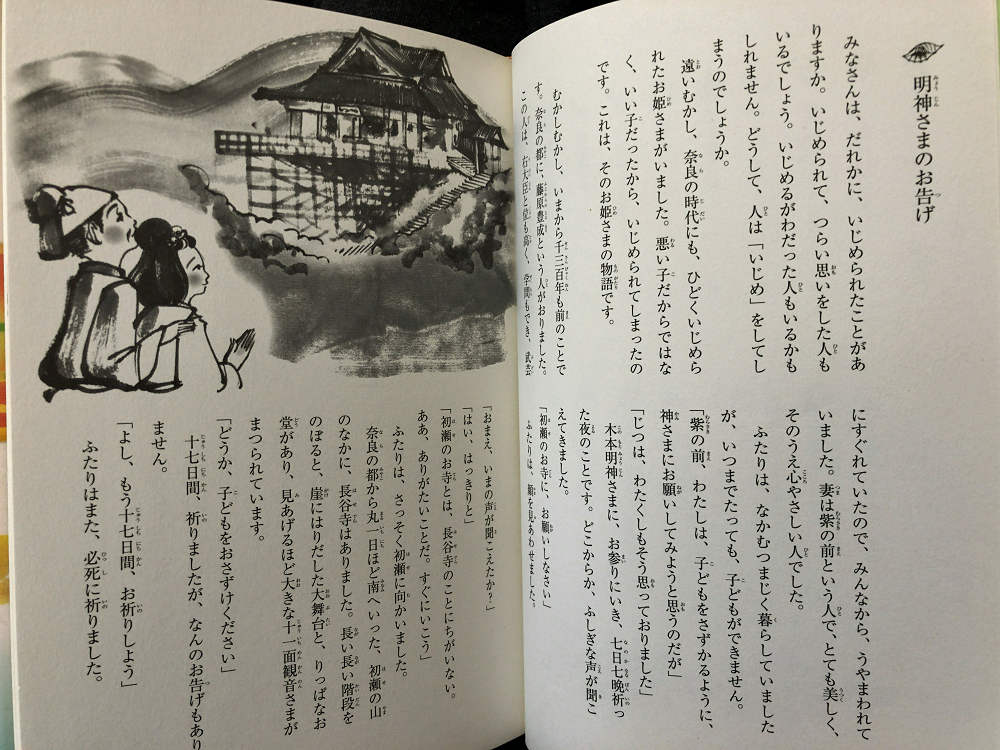 明神さまのお告げ
みなさんは、だれかに、いじめられたことがあ
りますか。いじめられて、つらい思いをした人も
いるでしょう。いじめるがわだった人もいるかも
しれません。どうして、人は「いじめ」をしてし
まうのでしょうか。
遠いむかし、奈良の時代にも、ひどくいじめら
れたお姫さまがいました。悪い子だからではな
く、いい子だったから、いじめられてしまったの
です。これは、そのお姫さまの物語です。
むかしむかし、いまから千三百年も前のことで
す。奈良の都に、藤原豊成という人がおりました。
この人は、右大臣と位も高く、学問もでき、武芸
にすぐれていたので、みんなから、うやまわれて
いました。妻は紫の前という人で、とても美しく、
そのうえ心やさしい人でした。
ふたりは、なかむつまじく暮らしていました
が、いつまでたっても、子どもができません。
「紫の前、わたしは、子どもをさずかるように、
神さまにお願いしてみようと思うのだが」
「じつは、わたくしもそう思っておりました」
木本明神さまに、お参りにいき、七日七晩祈っ
た夜のことです。どこからか、ふしぎな声が聞こ
えてきました。
「初瀬のお寺に、お願いしなさい」
ふたりは、顔を見あわせました。
「おまえ、いまの声が聞こえたか？」
「はい、はっきりと」
「初瀬のお寺とは、長谷寺のことにちがいない。
ああ、ありがたいことだ。すぐにいこう」
ふたりは、さっそく初瀬に向かいました。
奈良の都から丸一日ほど南へいった、初瀬の山
のなかに、長谷寺はありました。長い長い階段を
のぼると、崖にはりだした大舞台と、りっぱなお
堂があり、見あげるほど大きな十一面観音さまが
まつられています。
「どうか、子どもをおさずけください」
十七日間、祈りましたが、なんのお告げもあり
ません。
「よし、もう十七日間、お祈りしよう」
ふたりはまた、必死に祈りました。